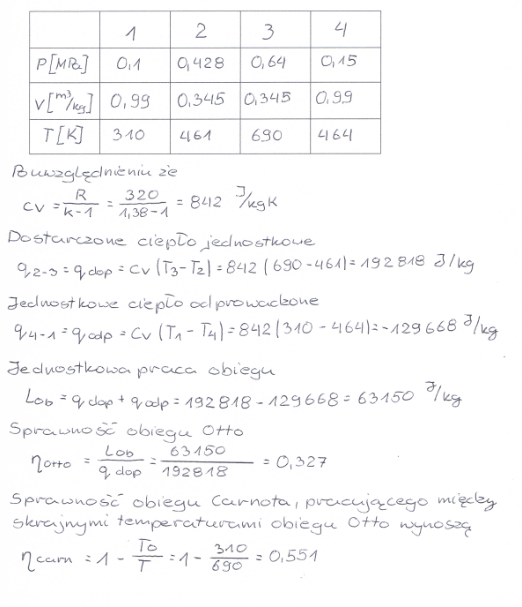 1 2 3 4
P[MPa] 0,1 0,428 0,64 0,15
V[m³/kg] 0,99 0,345 0,345 0,99
T[K] 310 461 690 464
Po uwzględnieniu że
cv = R/k-1 = 320/1,38-1 = 842 J/kgK
Dostarczone ciepło jednostkowe
q2-3 = q dop = cv (T3-T2) = 842 (690-461) = 192818 J/kg
Jednostkowe ciepło odprowadzone
q4-1 = q odp = cv (T1-T4) = 842 (310-464) = -129668 J/kg
Jednostkowa praca obiegu
Lob = q dop + q odp = 192818 - 129668 = 63150 J/kg
Sprawność obiegu Otto
ηotto = Lob/q dop = 63150/192818 = 0,327
Sprawność obiegu Carnota, pracującego między
skrajnymi temperaturami obiegu Otto wynoszą
ηcarn = 1 - To/T = 1 - 310/690 = 0,551